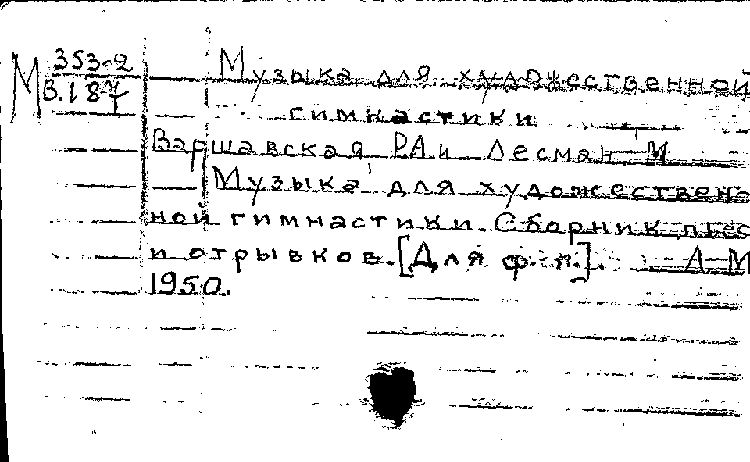 М 353-2
В.187
Музыка для художественной
гимнастики
Варшавская Р.А и Лесман М
Музыка для художествен-
ной гимнастики. Сборник пьес
и отрывков. [Для ф.-п.]. Л-М
1950.